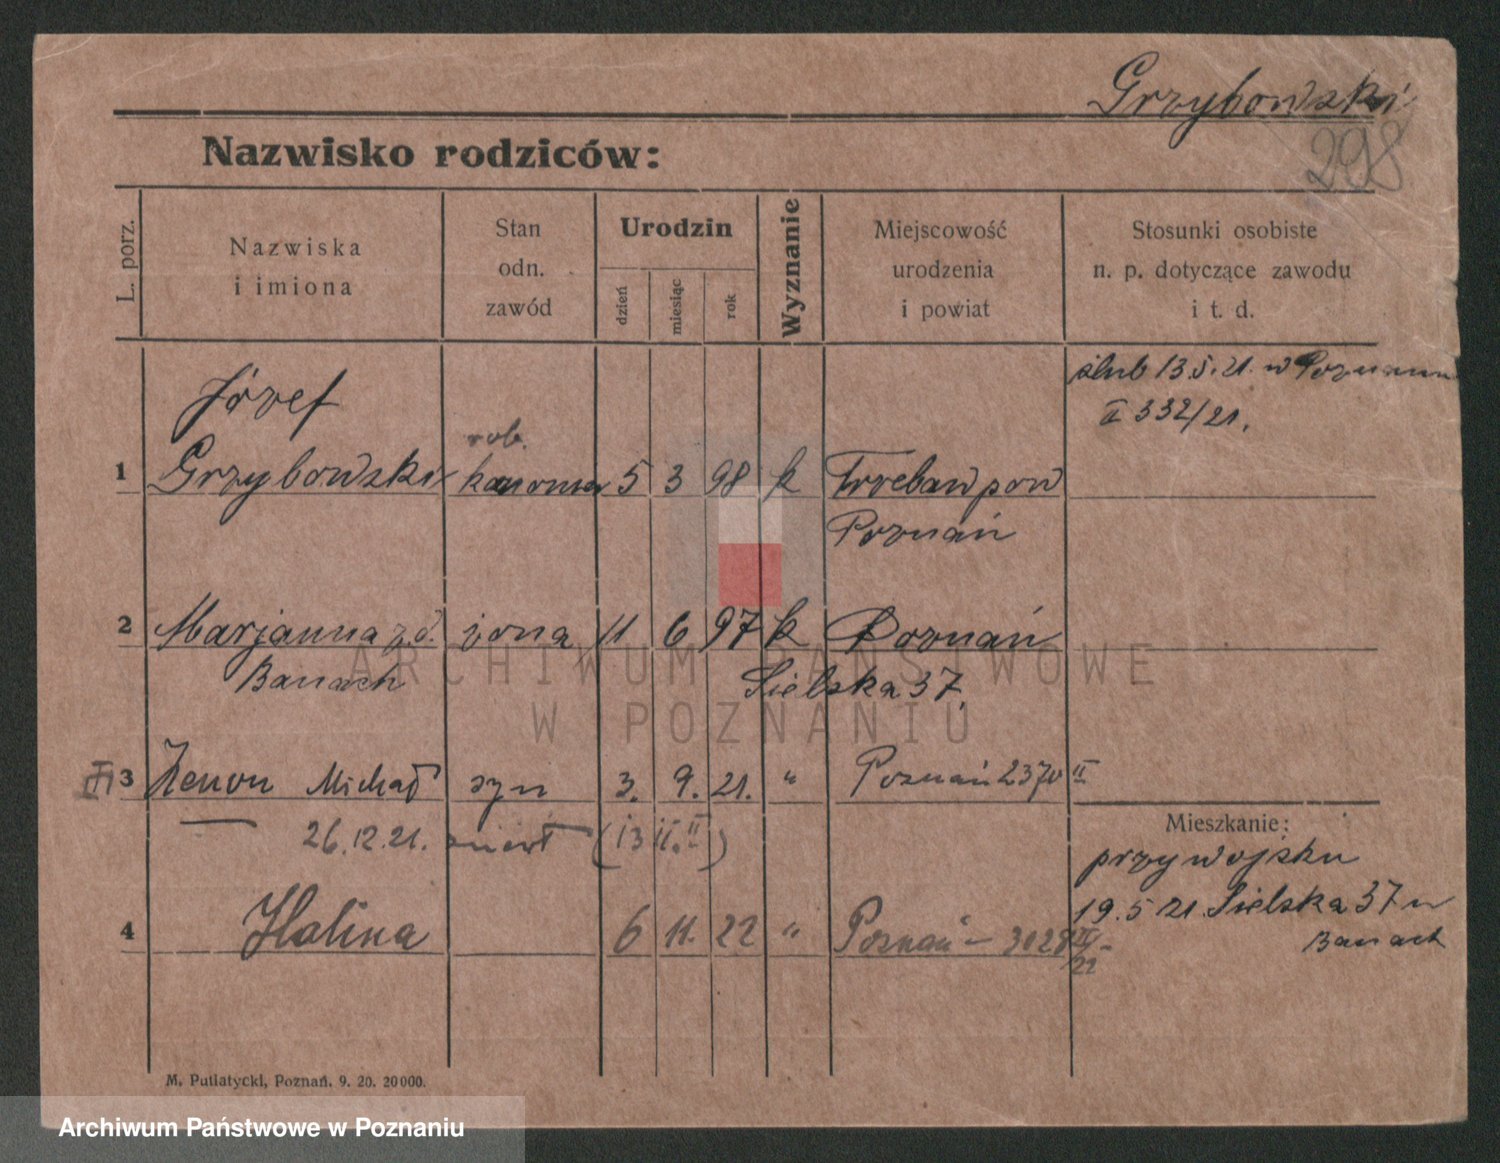 Grzybowski
298
Nazwisko rodziców:
L. porz.
Nazwiska
i imiona
Stan
odn.
zawód
Urodzin
dzień
miesiąc
rok
Wyznanie
Miejscowość
urodzenia
i powiat
Stosunki osobiste
n. p. dotyczące zawodu
i t. d.
ślub 13.5.21. w Poznaniu
II 332/21.
Józef
rob.
1 Grzybowski 5 3 98 k pow
Poznań
2 Marjanna zd. żona 11 6 97 k Poznań
Banach Sielska 37
3 Zenon Michał syn 3. 9. 21. " Poznań 2370 II
26.12.21. zmarł (13 II. II)
Mieszkanie:
przy wojsku
19.5 21. Sielska 37 u
Banach
4 Halina 6 11. 22 " Poznań – 3028 III
22
M. Putiatycki, Poznań. 9. 20. 20000.
ARCHIWUM PAŃSTWOWE
W POZNANIU
Archiwum Państwowe w Poznaniu